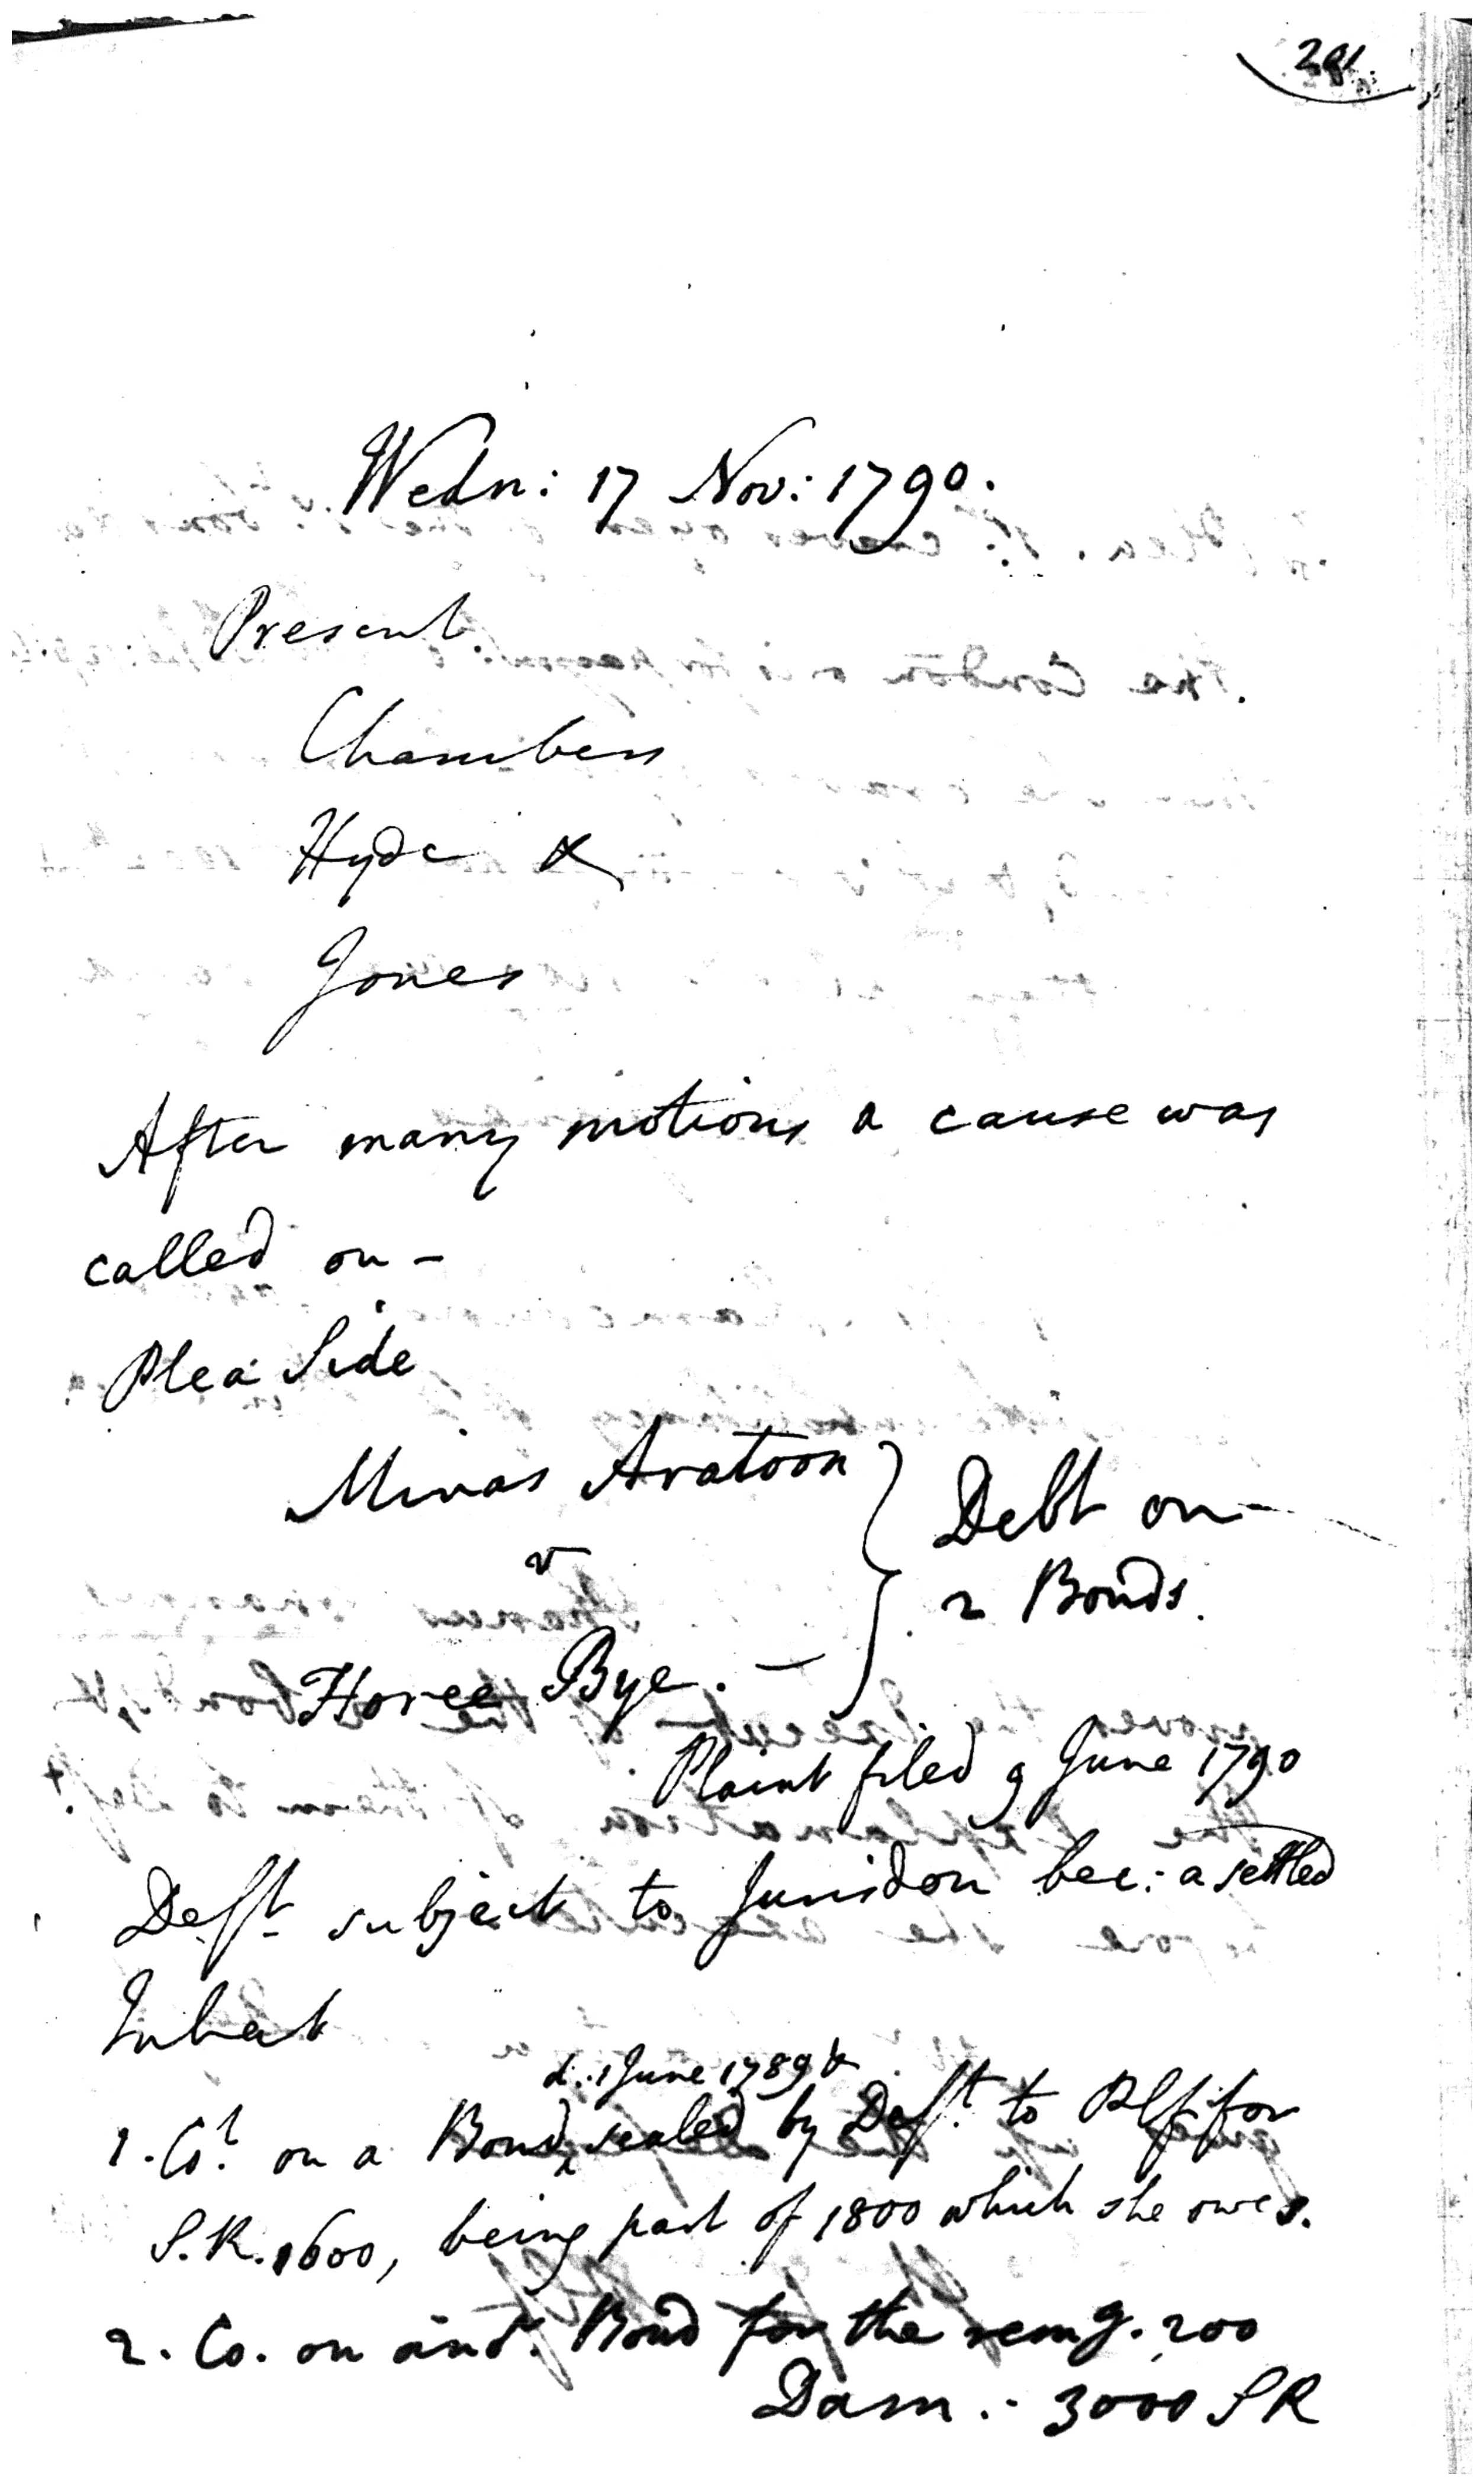 291
Wedn: 17 Nov: 1790.
Present
Chambers
Hyde &
Jones
After many motions a cause was
called on -
Plea Side
Minas Aratoon
v
Horee Bye. -
Debt on
2 Bonds.
Plaint filed 9 June 1790
Deft. subject to Jurisdon bec: a settled
Inhat
d. 1 June 1789 &
1. Ct. on a Bond, sealed by Deft. to Plff for
S.R. 1600, being part of 1800 which she owes.
2. Co. on anor. Bond for the remg. 200
Dam.: 3000 SR